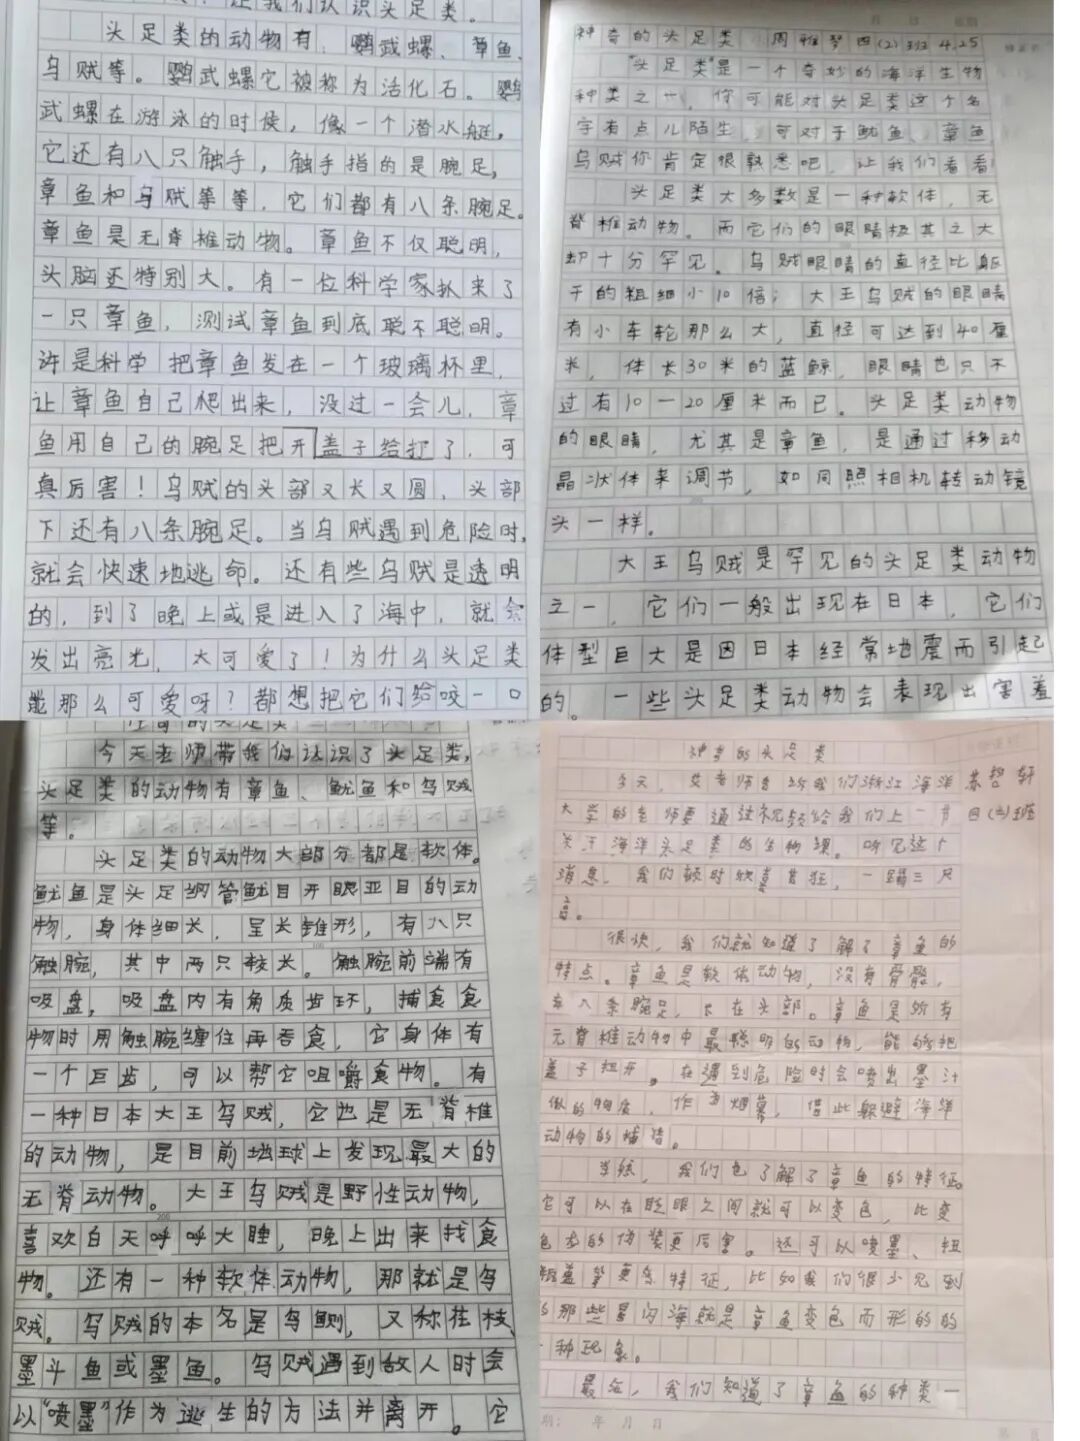 让我们认识头足类。
头足类的动物有：鹦武螺、章鱼、
乌贼等。鹦武螺它被称为活化石。鹦
武螺在游泳的时侯，像一个潜水艇，
它还有八只触手，触手指的是腕足，
章鱼和乌贼等等，它们都有八条腕足。
章鱼是无脊椎动物。章鱼不仅聪明，
头脑还特别大。有一位科学家趴来了
一只章鱼，测试章鱼到底聪不聪明。
许是科学把章鱼发在一个玻璃杯里，
让章鱼自己爬出来，没过一会儿，章
鱼用自己的腕足把开盖子给打了，可
真厉害！乌贼的头部又长又圆，头部
下还有八条腕足。当乌贼遇到危险时，
就会快速地逃命。还有些乌贼是透明
的，到了晚上或是进入了海中，就会
发出亮光，太可爱了！为什么头足类
那么可爱呀？都想把它们给咬一口
神奇的头足类 周雅琴四(2)班 4.25
“头足类”是一个奇妙的海洋生物
种类之一，你可能对头足类这个名
字有点儿陌生，可对于鱿鱼、章鱼
乌贼你肯定很熟悉吧，让我们看看！
头足类大多数是一种软体，无
脊椎动物。而它们的眼睛极其之大
却十分罕见。乌贼眼睛的直径比躯
干的粗细小10倍；大王乌贼的眼睛
有小车轮那么大，直径可达到40厘
米，体长30米的蓝鲸，眼睛也只不
过有10一20厘米而已。头足类动物
的眼睛，尤其是章鱼，是通过移动
晶状体来调节，如同照相机转动镜
头一样。
大王乌贼是罕见的头足类动物
之一，它们一般出现在日本，它们
体型巨大是因日本经常地震而引起
的。一些头足类动物会表现出害羞
的头足类
今天老师带我们认识了头足类，
头足类的动物有章鱼、鱿鱼和乌贼
等。
头足类的动物大部分都是软体。
鱿鱼是头足纲管鱿目开眼亚目的动
物，身体细长，呈长锥形，有八只
触腕，其中两只较长。触腕前端有
吸盘，吸盘内有角质齿环，捕食食
物时用触腕缠住再吞食，它身体有
一个巨齿，可以帮它咀嚼食物。有
一种日本大王乌贼，它也是无脊椎
的动物，是目前地球上发现最大的
无脊动物。大王乌贼是野性动物，
喜欢白天呼呼大睡，晚上出来找食
物。还有一种软体动物，那就是乌
贼。乌贼的本名是乌鲗，又称花枝、
墨斗鱼或墨鱼。乌贼遇到敌人时会
以“喷墨”作为逃生的方法并离开。它
神奇的头足类
今天，老师告诉我们浙江海洋
大学的老师要通过视频给我们上一节 四(3)班
关于海洋头足类的生物课。听见这个
消息，我们顿时欣喜若狂，一蹦三尺
高。
很快，我们就知道了解了章鱼的
特点。章鱼是软体动物，没有骨骼，
有八条腕足，长在头部。章鱼是所有
无脊椎动物中最聪明的动物，能够把
盖子扭开。在遇到危险时会喷出墨汁
似的物质，作为烟幕，借此躲避海洋
动物的捕 。
当然，我们也了解了章鱼的特征。
它可以在眨眼之间就可以变色，比变
色龙的伪装更厉害。还可以喷墨、扭
瓶盖等更多特征，比如我们很少见到
的那些 海就是章鱼变色而形的的
一种现象。
最后，我们知道了章鱼的种类一
期： 年 月 日